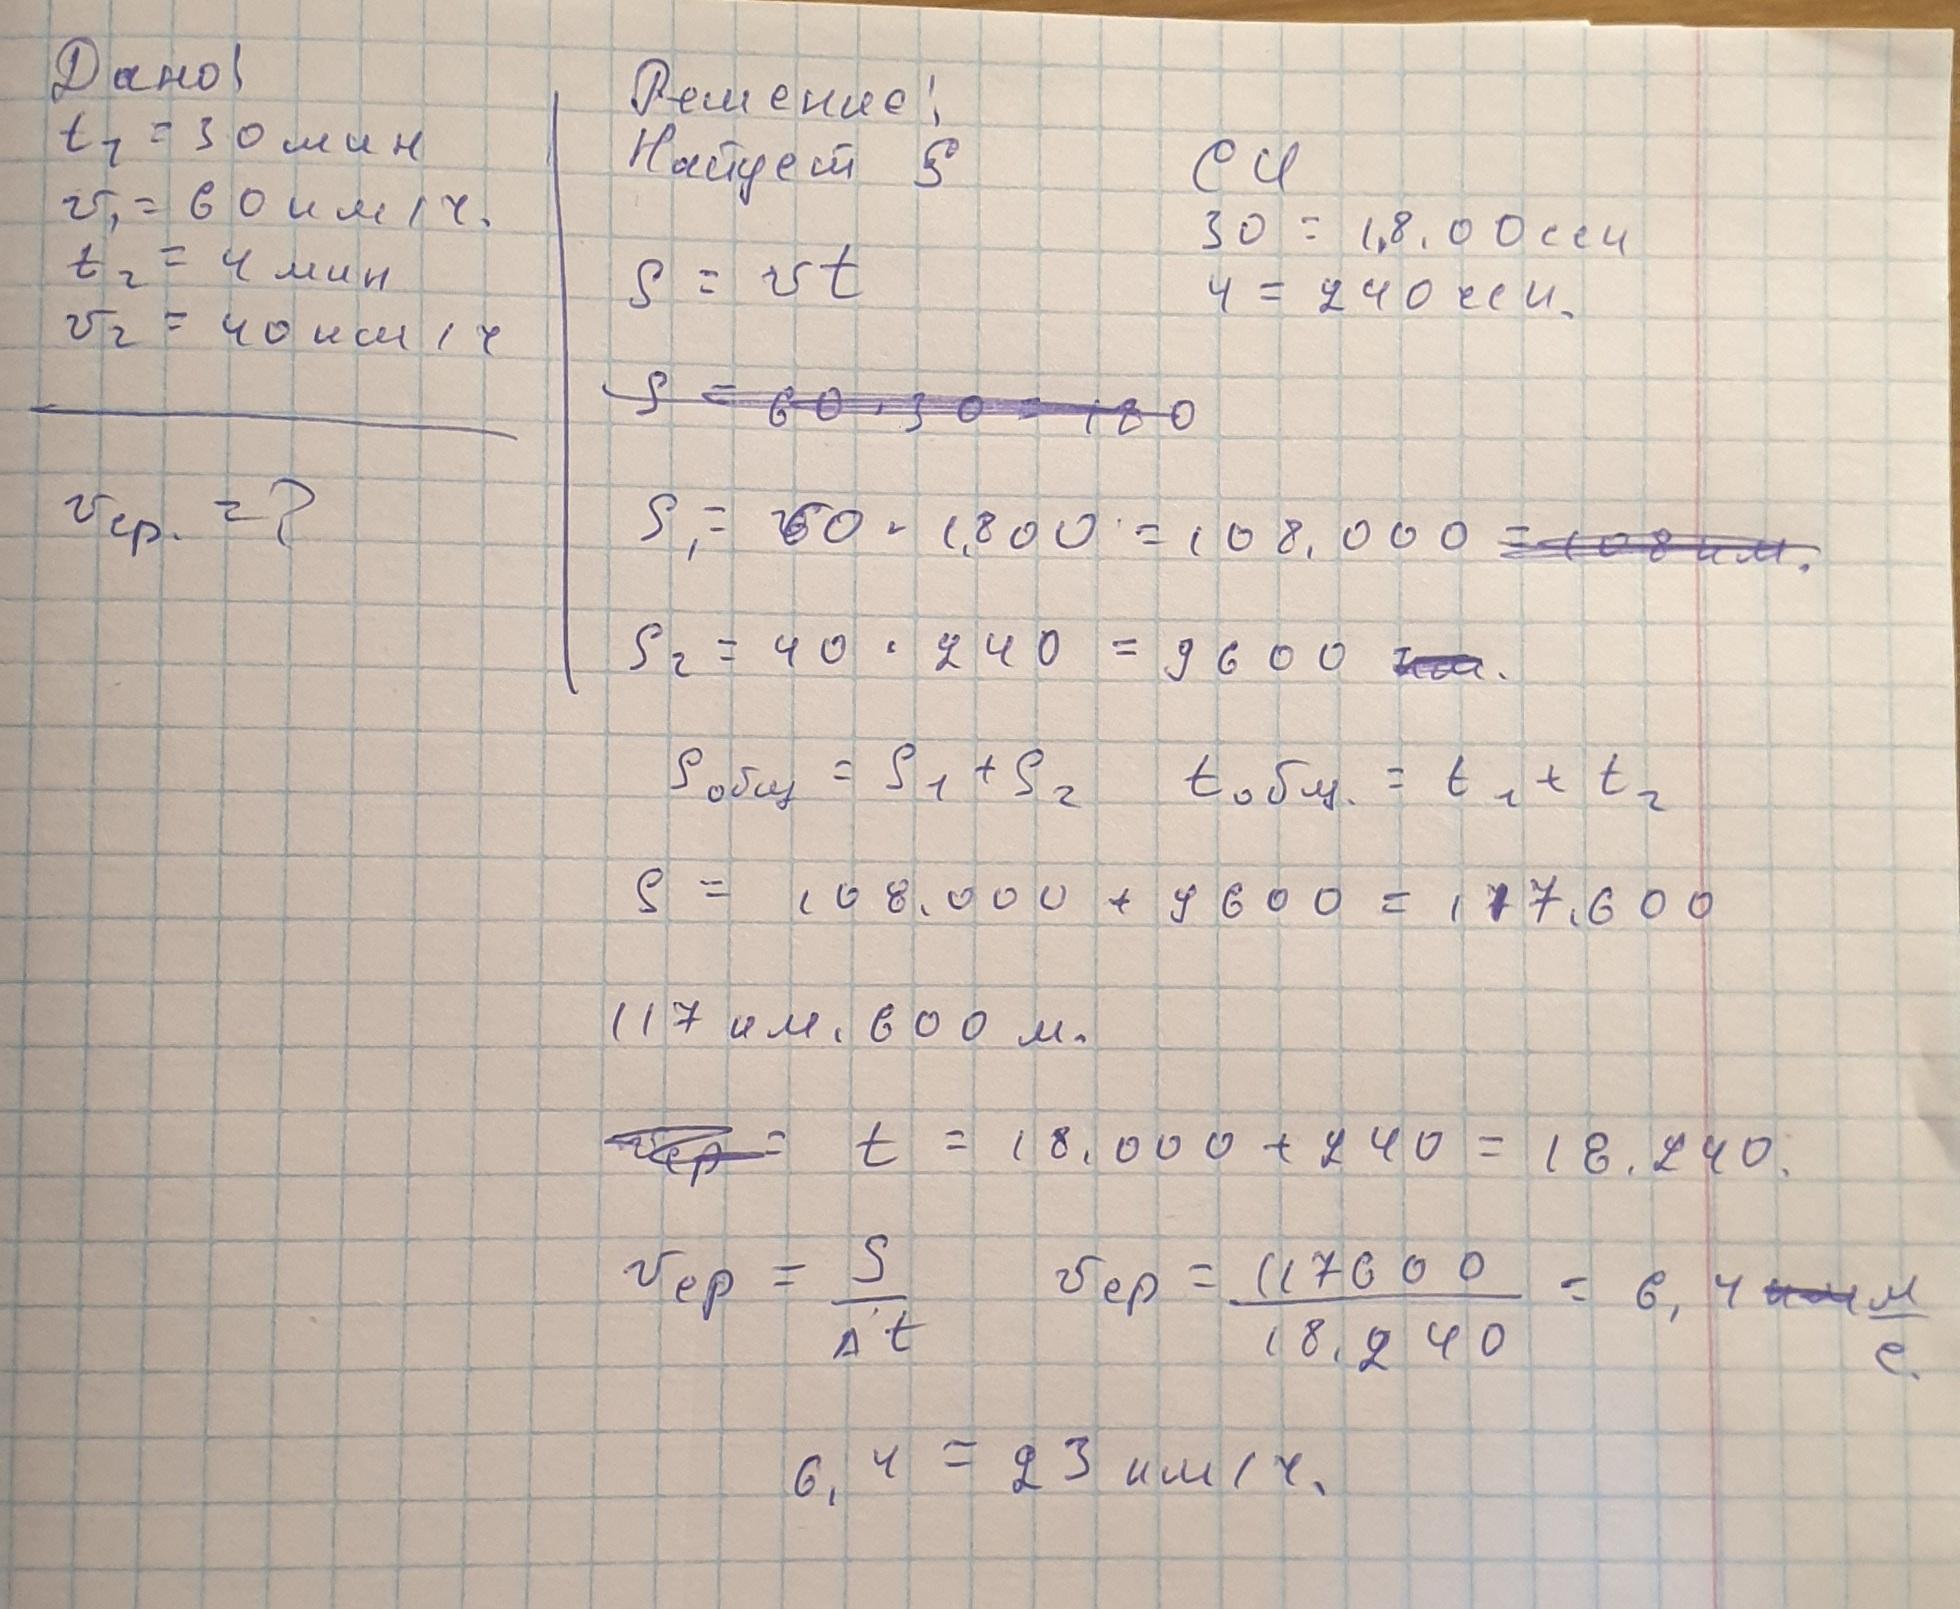 Дано:
t₁ = 30 мин
v₁ = 60 км/ч.
t₂ = 4 мин
v₂ = 40 км/ч
vср. = ?
Решение:
Найдем S
S = vt
СИ
30 = 1,8.00 сек
4 = 240 сек.
S = 60 · 30 = 180
S₁ = 60 · 1.800 = 108.000 = 108 км.
S₂ = 40 · 240 = 9600 км.
Sобщ = S₁ + S₂ tобщ. = t₁ + t₂
S = 108.000 + 9600 = 117.600
117 км. 600 м.
vср = t = 18.000 + 240 = 18.240.
vср = S/Δt vср = 117600/18.240 = 6,4 м/с.
6,4 = 23 км/ч.